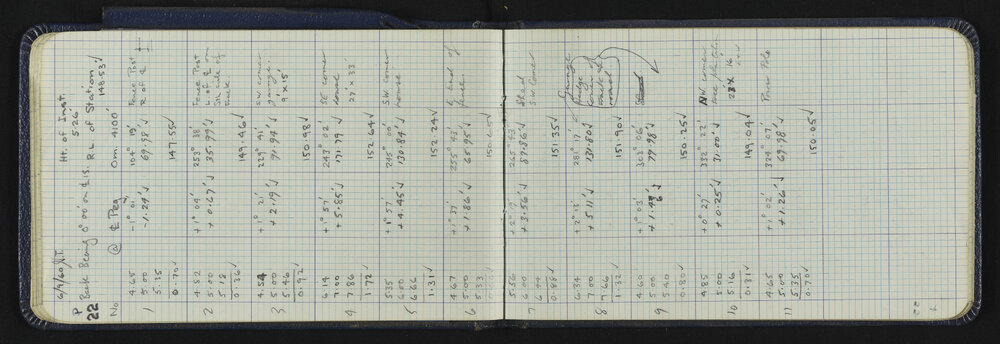 6/9/60 J.T. Ht. of Inst. 5.26'
P 22 Back Bearing 0°00' on ℄ 15. RL of Station 148.53√
No @ ℄ Peg Om. 4100'
1 4.65 -1° 01' 104° 19' Fence Post
5.00 -1.24'√ 69.98'√ R of ℄
5.35
0.70√ 147.55√
2 4.82 +1° 04' 253° 38' Fence Post
5.00 +0.67'√ 35.99'√ L of ℄ on
5.18 side of
0.36√ 149.46√ track.
3 4.54 +1° 21' SW corner
5.00 +2.19'√ 91.94'√ garage
5.46 9' x 15'
0.92√ 150.98√
4 6.14 +1° 57' 243° 02' SE corner
7.00 +5.85'√ 171.79√ house
7.86 27' x 33'
1.72√ 152.64√
5 5.35 +1° 57' 245° 00' SW corner
6.00 +4.45'√ 130.84'√ house
6.66
1.31√ 152.24√
6 4.67 +1° 37' 255° 43' bend of
5.00 +1.86'√ 65.95'√ fork
5.33
7 5.56 265° 43' Shed
6.00 +3.56'√ 87.86'√ S.W. corner
6.44
0.88√ 151.35√
8 6.34 +2° 13' 281° 17'
7.00 +5.11'√ 131.80'√
7.66
1.32√ 151.90√
9 4.60 +1° 03' 303° 06'
5.00 79.98'√
5.40
0.80√ 150.25√
10 4.85 +0° 27' 332° 22' NW corner
5.00 +0.25'√ 31.00'√
5.16 23 x 16
0.31√ 149.04√
11 4.65 +1° 02' 324° 07' Power Pole
5.00 +1.26'√ 69.98'√
5.35
0.70√ 150.05√